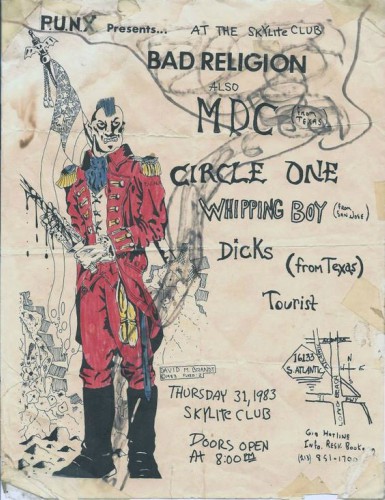 P.U.N.X Presents... AT THE SKYLITE CLUB
BAD RELIGION
ALSO
MDC (from TEXAS)
CIRCLE ONE
WHIPPING BOY (from SAN JOSE)
Dicks (from Texas)
Tourist
16133
S. ATLANTIC
N
E
S
DAVID M. BRANDT
THORSDAY 31, 1983
SKYLITE CLUB
DOORS OPEN
AT 8:00
Gig Hotline
Info. Rest. Book
(213) 851-1700